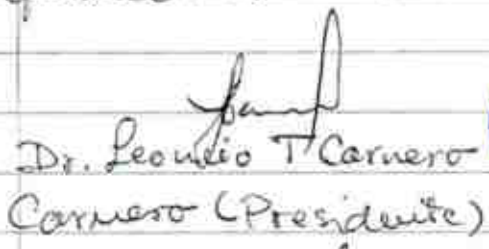 Dr. Leoncio T Carnero
Carnero (Presidente)